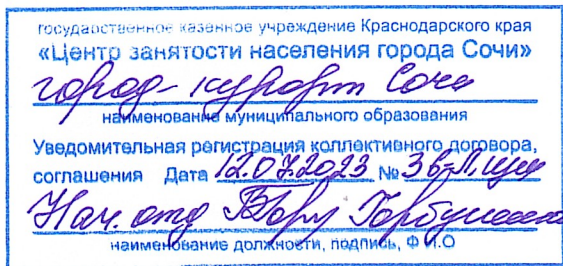 государственное казенное учреждение Краснодарского края
«Центр занятости населения города Сочи»
город-курорт Сочи
наименование муниципального образования
Уведомительная регистрация коллективного договора,
соглашения Дата 12.07.2023 №
Нач. отд
наименование должности, подпись, Ф.И.О